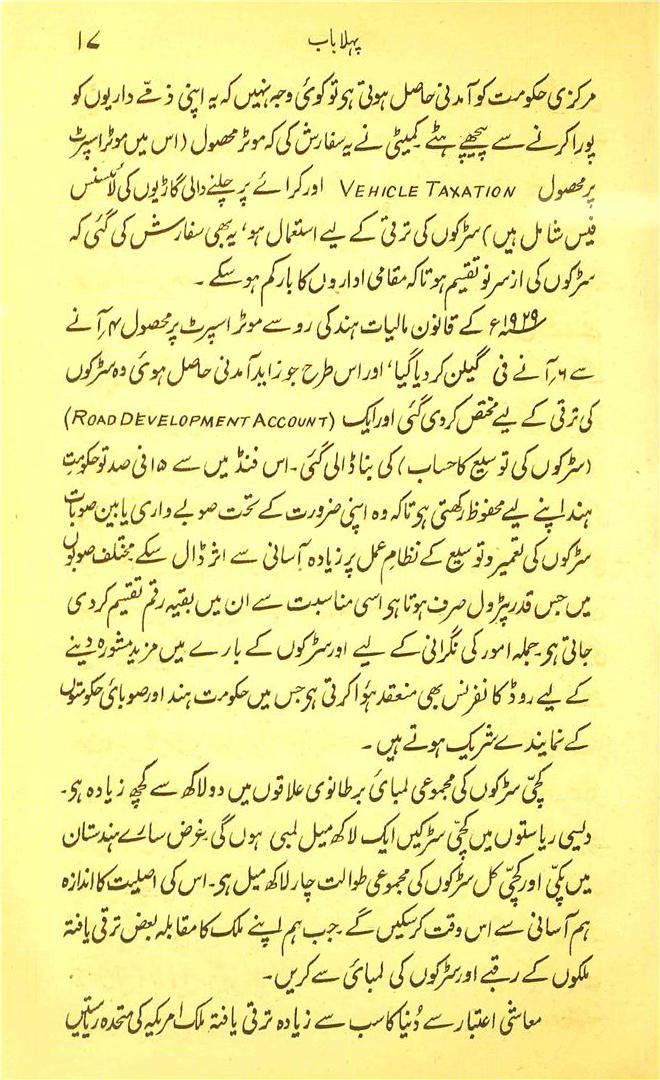 پہلا باب ۱۷
مرکزی حکومت کو آمدنی حاصل ہوتی ہو تو کوئی وجہ نہیں کہ یہ اپنی ذمّے داریوں کو
پورا کرنے سے پیچھے ہٹے۔ کمیٹی نے یہ سفارش کی کہ موٹر محصول (اس میں موٹر اسپرٹ
پر محصول VEHICLE TAXATION اور کرائے پر چلنے والی گاڑیوں کی لائسنس
فیس شامل ہیں) سڑکوں کی ترقی کے لیے استعمال ہو، یہ بھی سفارش کی گئی کہ
سڑکوں کی از سرِ نو تقسیم ہو تاکہ مقامی اداروں کا بار کم ہو سکے۔
۱۹۲۹ء کے قانون مالیات ہند کی رو سے موٹر اسپرٹ پر محصول ۴؍ آنے
سے ۶؍ آنے فی گیلن کر دیا گیا، اور اس طرح جو زاید آمدنی حاصل ہوئی وہ سڑکوں
کی ترقی کے لیے مختص کر دی گئی اور ایک (ROAD DEVELOPMENT ACCOUNT)
(سڑکوں کی توسیع کا حساب) کی بنا ڈالی گئی۔ اس فنڈ میں سے ۱۵ فی صد تو حکومتِ
ہند اپنے لیے محفوظ رکھتی ہو تاکہ وہ اپنی ضرورت کے تحت صوبے واری یا بین صوبات
سڑکوں کی تعمیر و توسیع کے نظامِ عمل پر زیادہ آسانی سے اثر ڈال سکے۔ مختلف صوبوں
میں جس قدر پٹرول صرف ہوتا ہو اسی مناسبت سے ان میں بقیہ رقم تقسیم کر دی
جاتی ہو۔ جملہ امور کی نگرانی کے لیے اور سڑکوں کے بارے میں مزید مشورہ دینے
کے لیے روڈ کانفرنس بھی منعقد ہؤا کرتی ہو جس میں حکومت ہند اور صوبائی حکومتوں
کے نمایندے شریک ہوتے ہیں۔
کچّی سڑکوں کی مجموعی لمبائی برطانوی علاقوں میں دو لاکھ سے کچھ زیادہ ہو۔
دیسی ریاستوں میں کچّی سڑکیں ایک لاکھ میل لمبی ہوں گی۔ غرض سارے ہندستان
میں پکّی اور کچّی کل سڑکوں کی مجموعی طوالت چار لاکھ میل ہو۔ اس کی اصلیت کا اندازہ
ہم آسانی سے اس وقت کر سکیں گے جب ہم اپنے ملک کا مقابلہ بعض ترقی یافتہ
ملکوں کے رقبے اور سڑکوں کی لمبائی سے کریں۔
معاشی اعتبار سے دُنیا کا سب سے زیادہ ترقی یافتہ ملک امریکہ کی متحدہ ریاستیں